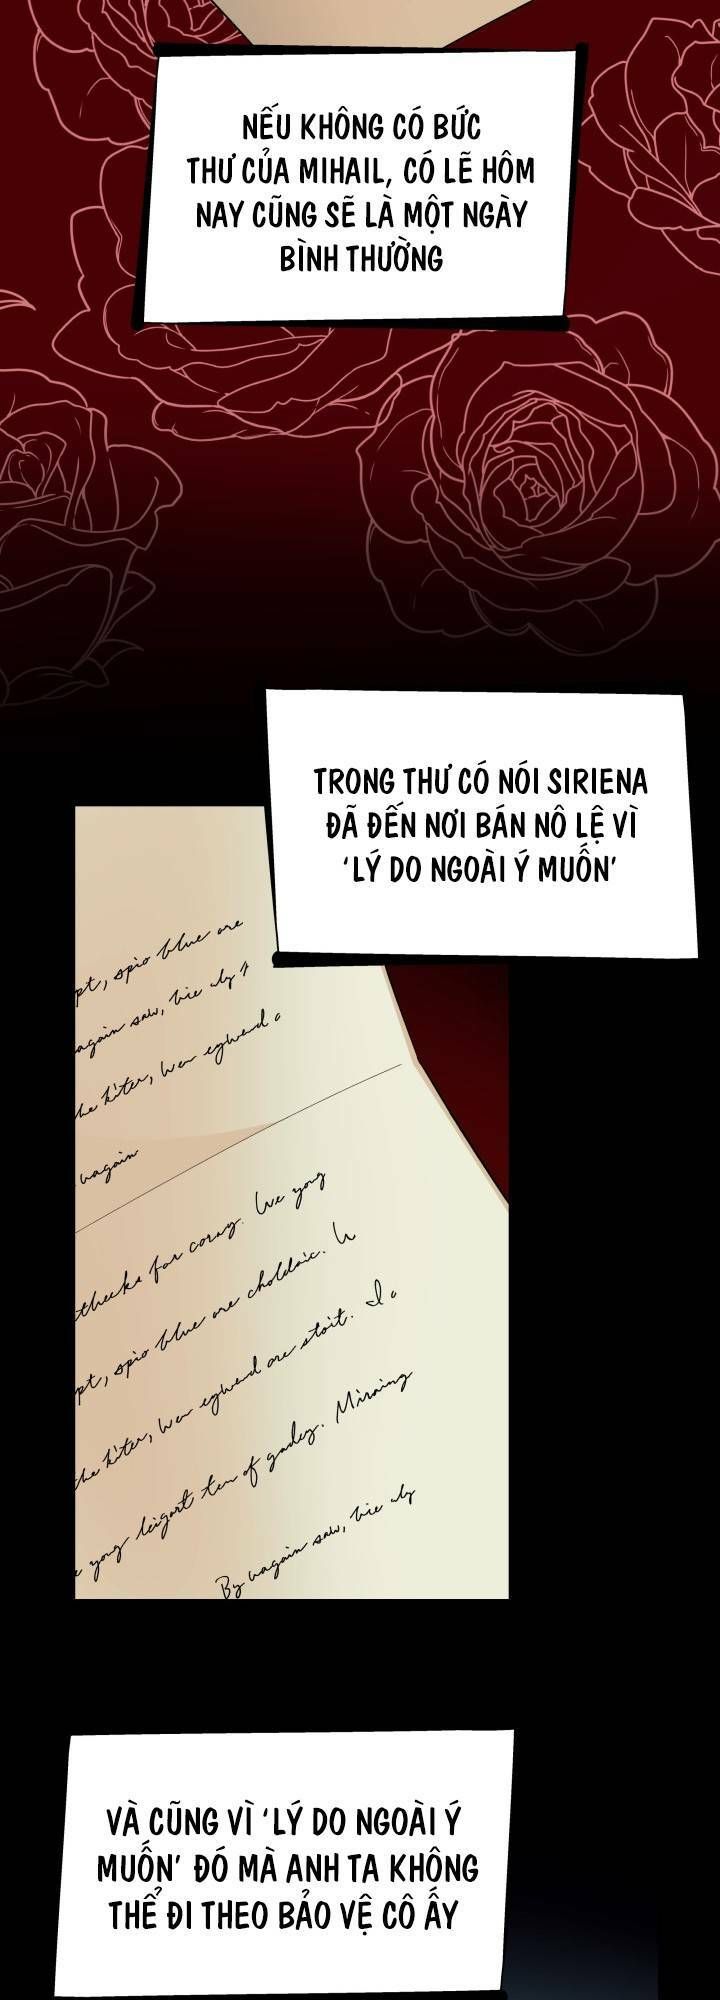 NẾU KHÔNG CÓ BỨC
THƯ CỦA MIHAIL, CÓ LẼ HÔM
NAY CŨNG SẼ LÀ MỘT NGÀY
BÌNH THƯỜNG
TRONG THƯ CÓ NÓI SIRIENA
ĐÃ ĐẾN NƠI BÁN NÔ LỆ VÌ
‘LÝ DO NGOÀI Ý MUỐN’
pt, spio blue are
again saw,
the kiter,
thecks for coray. We yong
pt, spio blue are choldaic.
the kiter, Wer egwend are stoit.
yong leigart ten of gadey. Miraing
By vagain saw,
VÀ CŨNG VÌ ‘LÝ DO NGOÀI Ý
MUỐN’ ĐÓ MÀ ANH TA KHÔNG
THỂ ĐI THEO BẢO VỆ CÔ ẤY